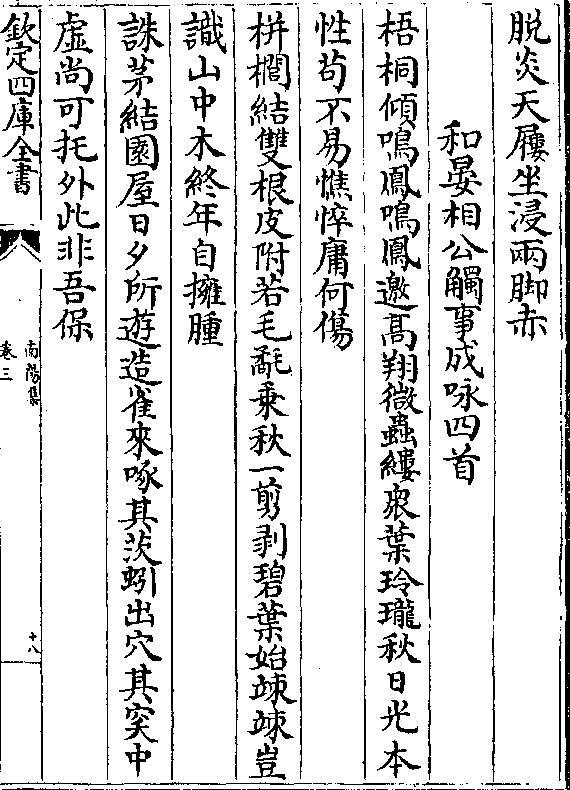 脱炎天屨坐浸兩脚赤
和晏相公觸事成咏四首
梧桐傾鳴鳳鳴鳳邀高翔微蟲縷衆葉玲瓏秋日光本
性苟不易憔悴庸何傷
栟櫚結雙根皮附若毛氄乗秋一剪剥碧葉始竦竦豈
識山中木終年自擁腫
誅茅結園屋日夕所遊造雀來啄其茨蚓出穴其突中
虚尚可托外此非吾保
欽定四庫全書
南陽集
卷三
十八